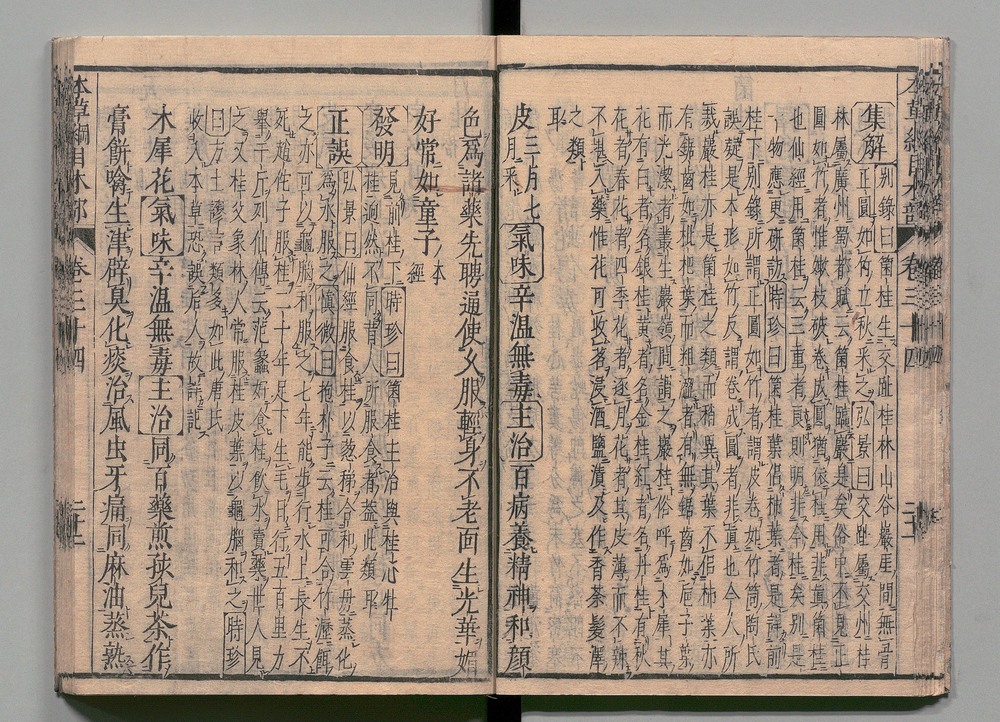 集解 別錄曰箘桂生交趾桂林山谷巖崖間無骨
正圓如竹立秋采之弘景曰交趾屬交州桂
林屬廣州蜀都賦云箘桂臨巖是矣俗中不見正
圓如竹者惟嫩枝破卷成圓猶依桂用非真箘桂
也仙經用箘桂云三重者良則明非今桂矣別是
一物應更研訪時珍曰箘桂葉似柿葉者是詳前
桂下別錄所謂正圓如竹者謂皮卷如竹筒陶氏
誤疑是木形如竹反謂卷成圓者非真也今人所
栽巖桂亦是箘桂之類而稍異其葉不似柿葉亦
有鋸齒如枇杷葉而粗澀者有無鋸齒如巵子葉
而光潔者叢生巖嶺間謂之巖桂俗呼為木犀其
花有白者名銀桂黃者名金桂紅者名丹桂有秋
花者春花者四季花者逐月花者其皮薄而不辣
不堪入藥惟花可收茗浸酒鹽漬及作香茶髮澤
之類
耳
皮 三月七月采 氣味 辛溫無毒 主治 百病養精神和顏
色為諸藥先聘通使久服輕身不老面生光華媚
好常如童子 本經
發明 見前桂下時珍曰箘桂主治與桂心牡
桂迥然不同昔人所服食者蓋此類耶
正誤 弘景曰仙經服食桂以葱涕合和雲母蒸化
為水服之慎微曰抱朴子云桂可合竹瀝餌
之亦可以龜腦和服之七年能步行水上長生不
死趙佗子服桂二十年足下生毛日行五百里力
舉千斤列仙傳云范蠡好食桂飲水賣藥世人見
之又桂父象林人常服桂皮葉以龜腦和之時珍
曰方士謬言類多如此唐氏
收入本草恐誤後人故詳記
木犀花 氣味 辛溫無毒 主治 同百藥煎孩兒茶作
膏餅噙生津辟臭化痰治風虫牙痛同麻油蒸熟
本草綱目木部 卷三十四